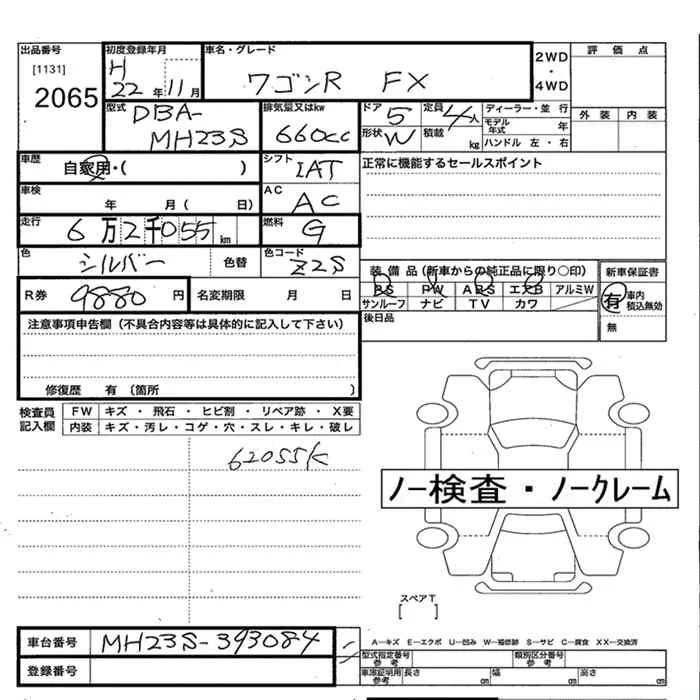 出品番号
[1131]
2065
初度登録年月
H
22 年 11 月
車名・グレード
ワゴンR FX
2WD
・
4WD
評価点
外装 内装
型式
DBA-
MH23S
排気量又はkw
660cc
ドア 5
定員 4人
形状 W
積載 kg
ディーラー・並行
モデル年式 年
ハンドル 左・右
車歴
自家用・( )
シフト
IAT
正常に機能するセールスポイント
車検
年 月( 日)
AC
AC
走行
6万2千055 km
燃料
G
色
シルバー
色替
色コード
Z2S
装備品(新車からの純正品に限り○印)
PS PW ABS エアB アルミW
サンルーフ ナビ TV カワ
新車保証書
有 車内積込無効
無
R券 9880 円
名変期限 月 日
後日品
注意事項申告欄(不具合内容等は具体的に記入して下さい)
修復歴 有 〔箇所 〕
検査員
記入欄
FW キズ・飛石・ヒビ割・リペア跡・X要
内装 キズ・汚レ・コゲ・穴・スレ・キレ・破レ
62055K
ノー検査・ノークレーム
スペアT
[ ]
車台番号 MH23S-393084
登録番号
A―キズ E―エクボ U―凹み W―補修跡 S―サビ C―腐食 XX―交換済
型式指定番号
参考
類別区分番号
参考
車庫証明用
参考
長さ ㎝ 幅 ㎝ 高さ ㎝